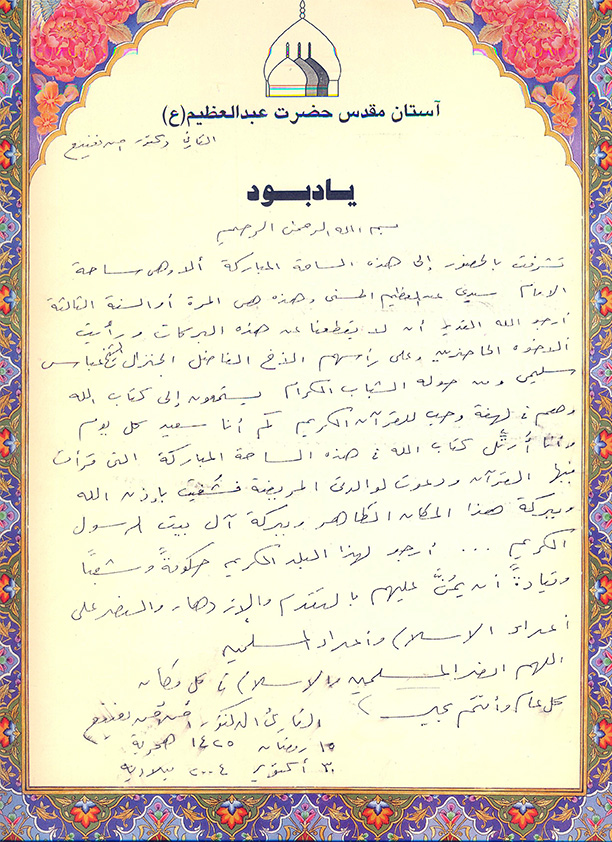 آستان مقدس حضرت عبدالعظیم(ع)
القارئ دكتور احمد نعينع
یادبود
بسم الله الرحمن الرحيم
تشرفت بالحضور إلى هذه الساحة المباركة ألا وهى ساحة
الامام سيدى عبد العظيم الحسنى وهذه هى المرة أو السنة الثالثة
أرجو الله القدير أن لا يقطعنا عن هذه البركات ورأيت
الاخوه الحاضرين وعلى رأسهم الأخ الفاضل الجنرال عباس
سليمى ومن حوله الشباب الكرام يستمعون إلى كتاب الله
وهم فى لهفة وحب للقرآن الكريم كم أنا سعيد كل يوم
وأنا أرتل كتاب الله فى هذه الساحة المباركة التى قرأت
فيها القرآن ودعوت لوالدتى المريضة فشفيت بإذن الله
وببركة هذا المكان الطاهر وببركة آل بيت الرسول
الكريم ... أرجو لهذا البلد الكريم حكومةً وشعباً
وقيادةً أن يمُنَّ عليهم بالتقدم والإزدهار والنصر على
أعداء الاسلام وأعداء المسلمين
اللهم انصر المسلمين والاسلام فى كل مكان
كل عام وأنتم بخير
القارئ الدكتور احمد احمد نعينع
١٥ رمضان ١٤٢٥ هجرية
٣٠ أكتوبر ٢٠٠٤ ميلادية